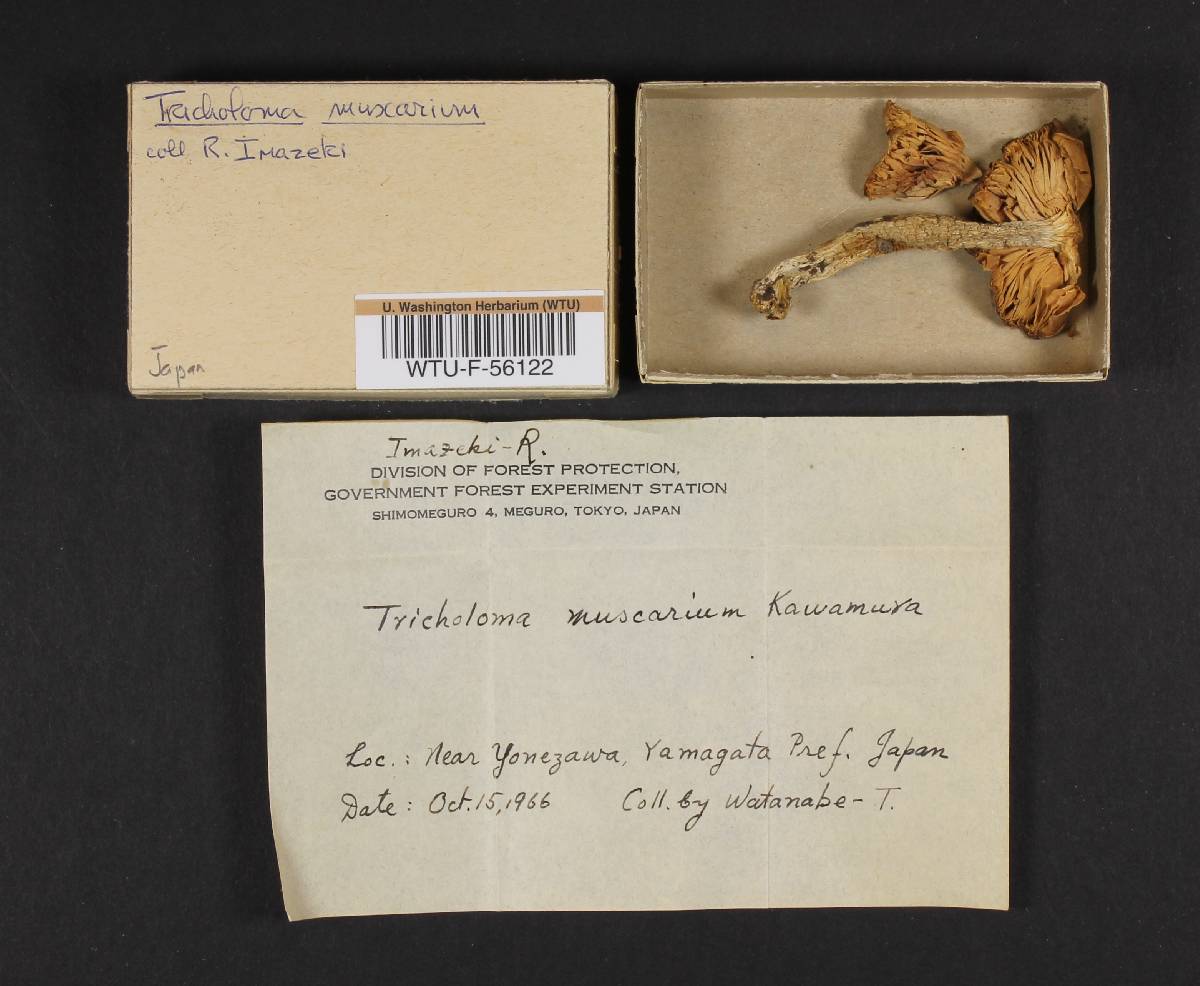 Tricholoma muscarium
coll R. Imazeki
U. Washington Herbarium (WTU)
WTU-F-56122
Japan
Imazeki-R.
DIVISION OF FOREST PROTECTION,
GOVERNMENT FOREST EXPERIMENT STATION
SHIMOMEGURO 4, MEGURO, TOKYO, JAPAN
Tricholoma muscarium Kawamura
Loc.: Near Yonezawa, Yamagata Pref. Japan
Date: Oct. 15, 1966 Coll. by Watanabe-T.